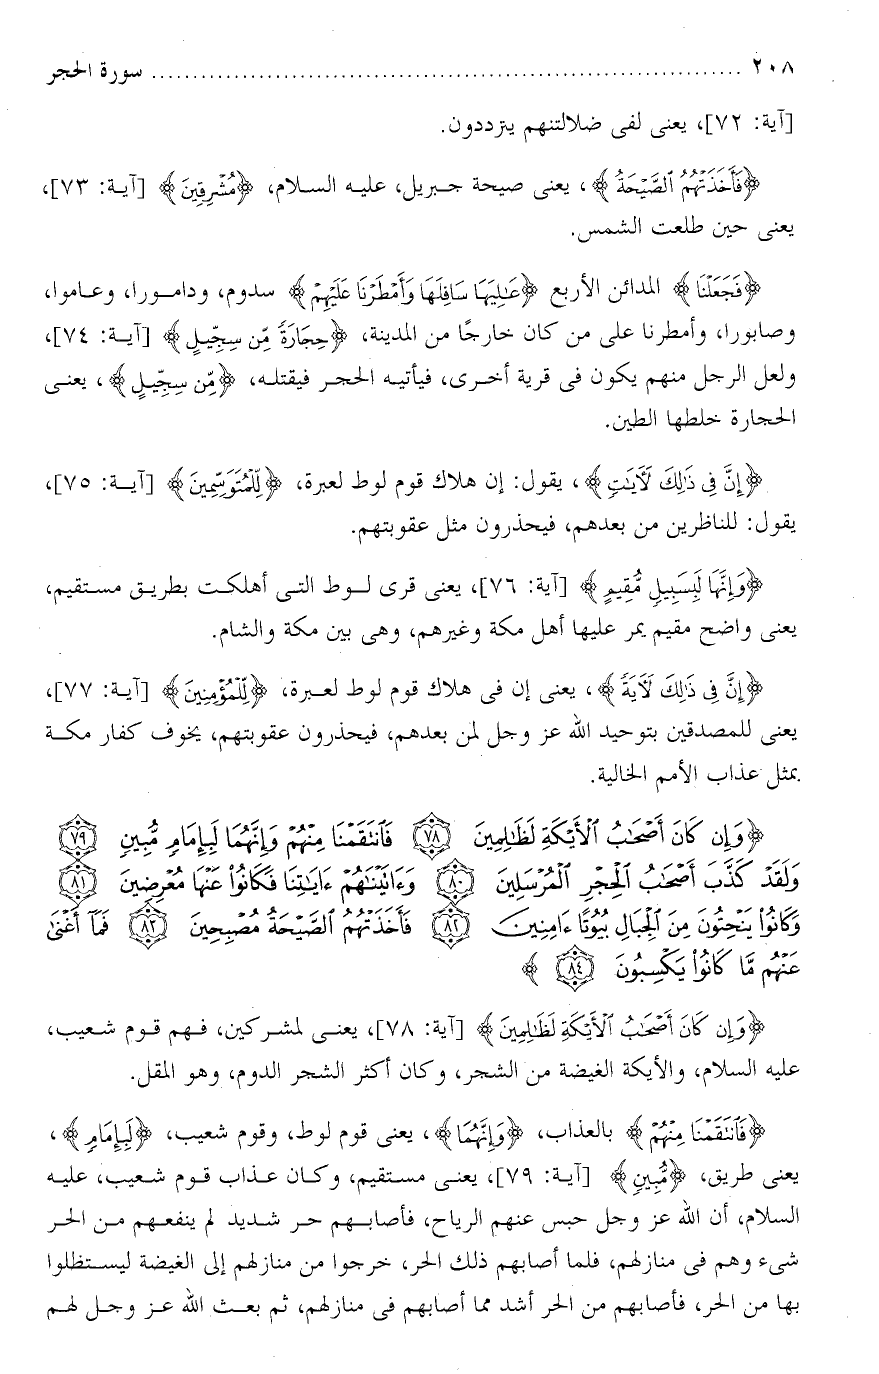 ٢٠٨ ........................................................................ سورة الحجر
[آية: ٧٢]، يعنى لفى ضلالتهم يترددون.
﴿فَأَخَذَتْهُمُ ٱلصَّيْحَةُ﴾، يعنى صيحة جبريل، عليه السلام، ﴿مُشْرِقِينَ﴾ [آية: ٧٣]،
يعنى حين طلعت الشمس.
﴿فَجَعَلْنَا﴾ المدائن الأربع ﴿عَٰلِيَهَا سَافِلَهَا وَأَمْطَرْنَا عَلَيْهِمْ﴾ سدوم، ودامورا، وعاموا،
وصابورا، وأمطرنا على من كان خارجًا من المدينة، ﴿حِجَارَةً مِّن سِجِّيلٍ﴾ [آية: ٧٤]،
ولعل الرجل منهم يكون فى قرية أخرى، فيأتيه الحجر فيقتله، ﴿مِّن سِجِّيلٍ﴾، يعنى
الحجارة خلطها الطين.
﴿إِنَّ فِى ذَٰلِكَ لَأَيَٰتٍ﴾، يقول: إن هلاك قوم لوط لعبرة، ﴿لِّلْمُتَوَسِّمِينَ﴾ [آية: ٧٥]،
يقول: للناظرين من بعدهم، فيحذرون مثل عقوبتهم.
﴿وَإِنَّهَا لَبِسَبِيلٍ مُّقِيمٍ﴾ [آية: ٧٦]، يعنى قرى لوط التى أهلكت بطريق مستقيم،
يعنى واضح مقيم يمر عليها أهل مكة وغيرهم، وهى بين مكة والشام.
﴿إِنَّ فِى ذَٰلِكَ لَأَيَةً﴾، يعنى إن فى هلاك قوم لوط لعبرة، ﴿لِّلْمُؤْمِنِينَ﴾ [آية: ٧٧]،
يعنى للمصدقين بتوحيد الله عز وجل لمن بعدهم، فيحذرون عقوبتهم، يخوف كفار مكة
بمثل عذاب الأمم الخالية.
﴿وَإِن كَانَ أَصْحَٰبُ ٱلْأَيْكَةِ لَظَٰلِمِينَ ٧٨ فَٱنتَقَمْنَا مِنْهُمْ وَإِنَّهُمَا لَبِإِمَامٍ مُّبِينٍ ٧٩
وَلَقَدْ كَذَّبَ أَصْحَٰبُ ٱلْحِجْرِ ٱلْمُرْسَلِينَ ٨٠ وَءَاتَيْنَٰهُمْ ءَايَٰتِنَا فَكَانُوا۟ عَنْهَا مُعْرِضِينَ ٨١
وَكَانُوا۟ يَنْحِتُونَ مِنَ ٱلْجِبَالِ بُيُوتًا ءَامِنِينَ ٨٢ فَأَخَذَتْهُمُ ٱلصَّيْحَةُ مُصْبِحِينَ ٨٣ فَمَآ أَغْنَىٰ
عَنْهُم مَّا كَانُوا۟ يَكْسِبُونَ ٨٤﴾
﴿وَإِن كَانَ أَصْحَٰبُ ٱلْأَيْكَةِ لَظَٰلِمِينَ﴾ [آية: ٧٨]، يعنى لمشركين، فهم قوم شعيب،
عليه السلام، والأيكة الغيضة من الشجر، وكان أكثر الشجر الدوم، وهو المقل.
﴿فَٱنتَقَمْنَا مِنْهُمْ﴾ بالعذاب، ﴿وَإِنَّهُمَا﴾، يعنى قوم لوط، وقوم شعيب، ﴿لَبِإِمَامٍ﴾،
يعنى طريق، ﴿مُّبِينٍ﴾ [آية: ٧٩]، يعنى مستقيم، وكان عذاب قوم شعيب، عليه
السلام، أن الله عز وجل حبس عنهم الرياح، فأصابهم حر شديد لم ينفعهم من الحر
شىء وهم فى منازلهم، فلما أصابهم ذلك الحر، خرجوا من منازلهم إلى الغيضة ليستظلوا
بها من الحر، فأصابهم من الحر أشد مما أصابهم فى منازلهم، ثم بعث الله عز وجل لهم